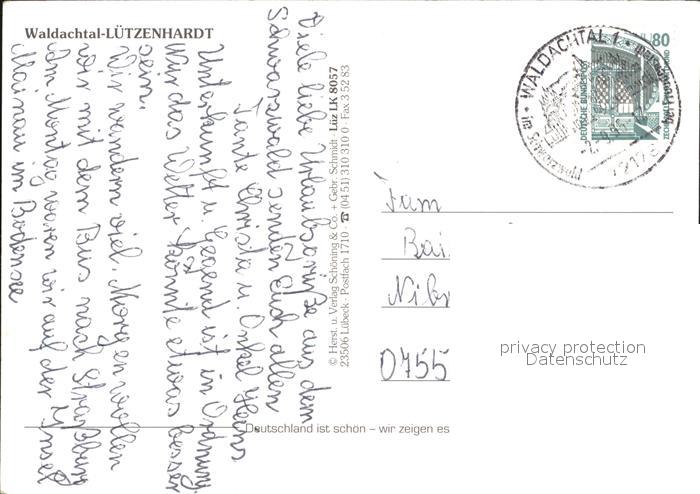 Waldachtal-LÜTZENHARDT
Viele liebe Urlaubsgrüße aus dem
Schwarzwald senden Euch allen
Tante Christa u. Onkel Heinz.
Unterkunft u. Gegend ist in Ordnung.
Nur das Wetter könnte etwas besser
sein.
Wir wandern viel. Morgen wollen
wir mit dem Bus nach Straßburg
Am Montag waren wir auf der Insel
Mainau im Bodensee
© Herst. u. Verlag Schöning & Co. + Gebr. Schmidt · Lüz LK 8057
23506 Lübeck · Postfach 1710 · ☎ (04 51) 310 310 0 · Fax 3 52 83
80
DEUTSCHE BUNDESPOST
WALDACHTAL 1
Fam
Bai
Nib
0755
privacy protection
Datenschutz
Deutschland ist schön – wir zeigen es